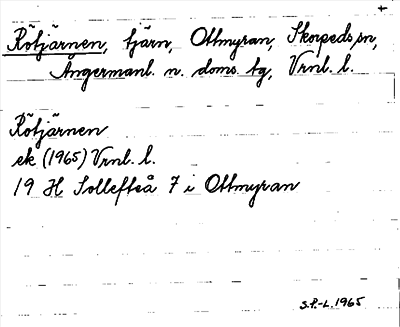 Rötjärnen, tjärn, Ottmyran, Skorpeds sn,
Ångermanl. n. doms. tg, Vrnl. l.
Rötjärnen
ek (1965) Vrnl. l.
19 H Sollefteå 7 i Ottmyran
S.P.-L. 1965